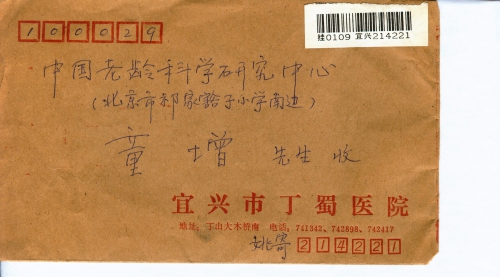 100029
挂0109 宜兴214221
中国老龄科学研究中心
(北京市祁家豁子小学南边)
童 增 先生 收
宜兴市丁蜀医院
地址:丁山大木桥南 电话:741342、742898、742417
姚寄 214221